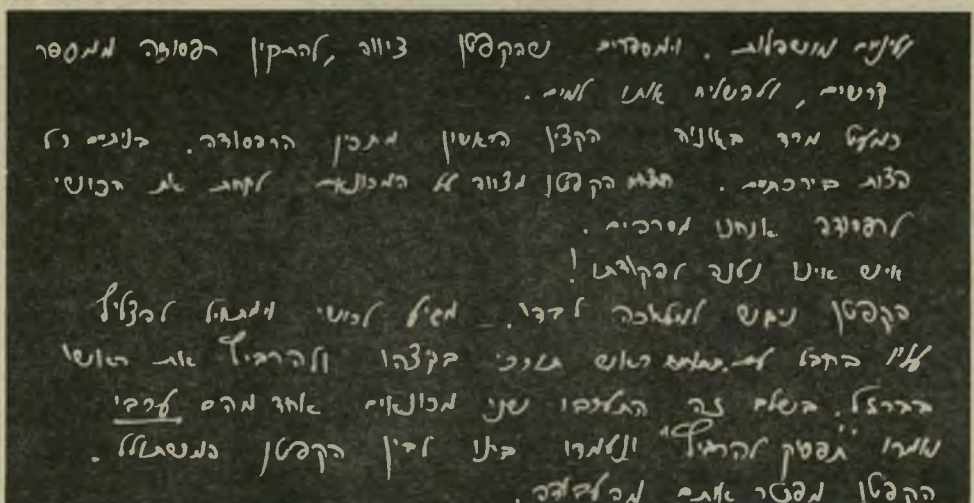 עינים מושפלות. וימסדרים שהקפטן ציווה, להתקין רפסודה ממספר
קרשים, ולהשליח אותו למים.
כמעט מרד באוניה הקצין הראשון מתכין הרפסודה. בנתים רל
הצות בירכתים. הקפטן מצווה על המכונאי לקחת את הכושי
לרפסודה אנחנו מסרבים.
איש אינו נענה לפקודתו!
הקפטן ניגש למלאכה לבדו. מגיע לכושי ומתחיל להצליף
עליו בחבל ראש תורכי בקצהו ולהרביץ את ראשו
בברזל. בשלב זה התערבו שני מכונאים אחד מהם ערבי
ואמרו "תפסיק להרביץ" ונעמדו בינו לבין הקפטן המשתולל.
הקפטן מפטר אותם מהעבודה.